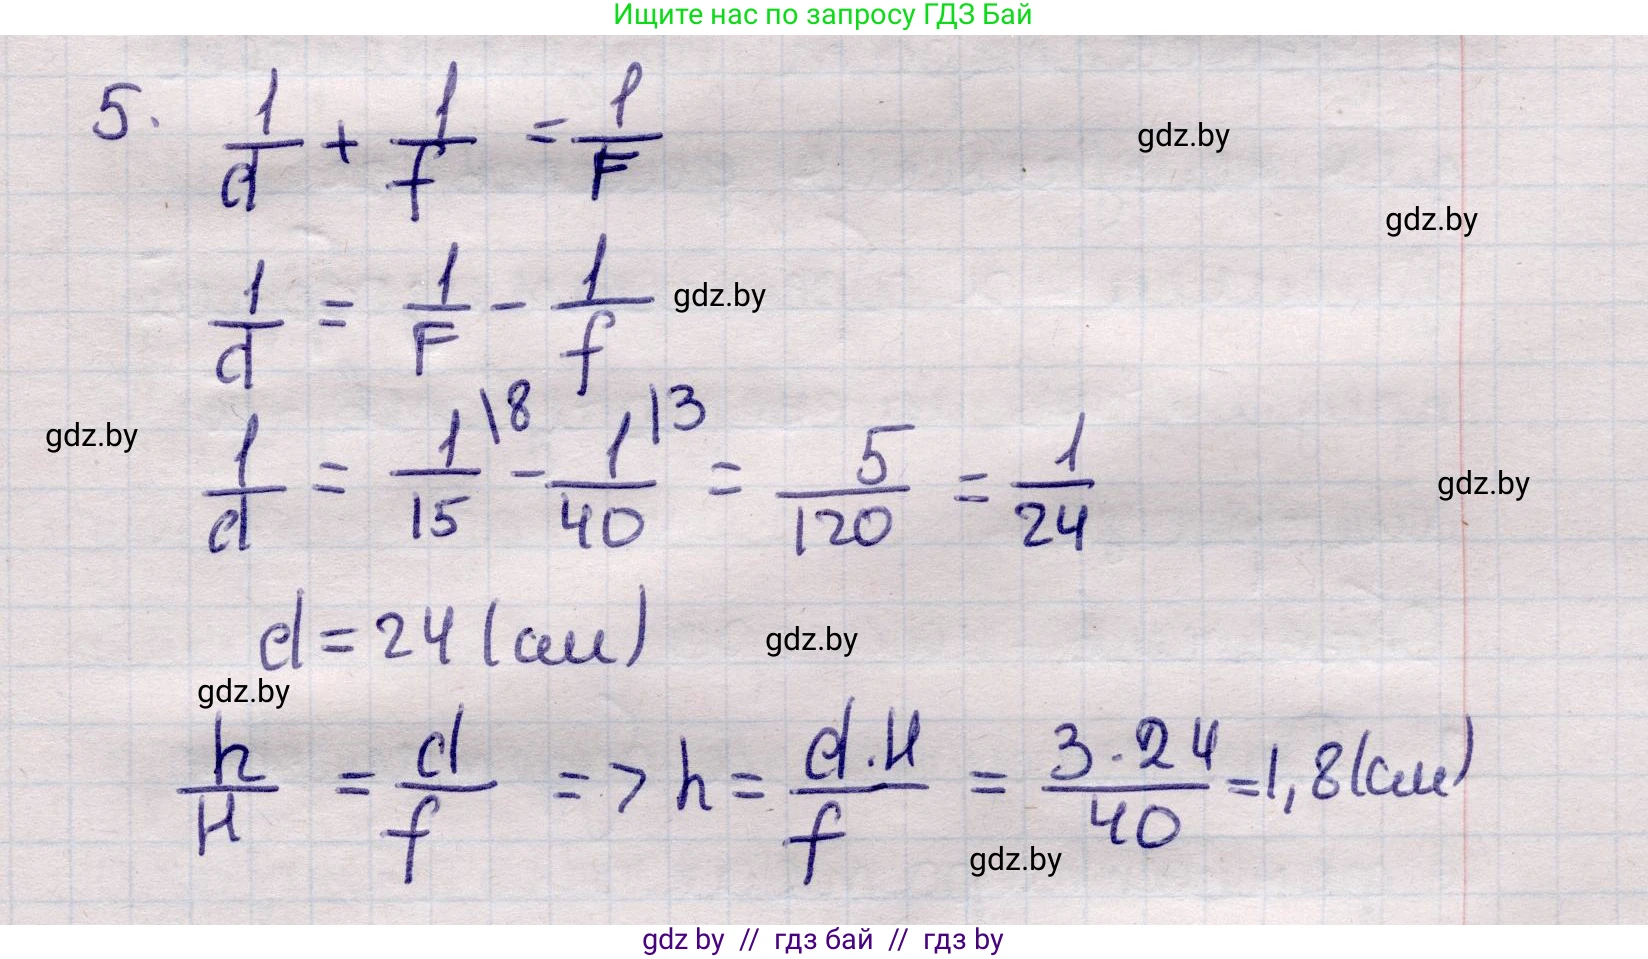 Ищите нас по запросу ГДЗ Бай
5. 1/d + 1/f = 1/F
gdz.by
gdz.by
1/d = 1/F - 1/f
gdz.by
gdz.by
1/d = 1/15 \8 - 1/40 |3 = 5/120 = 1/24
gdz.by
d = 24 (см)
gdz.by
gdz.by
h/H = d/f => h = d·H/f = 3·24/40 = 1,8 (см)
gdz.by
gdz by // гдз бай // гдз by